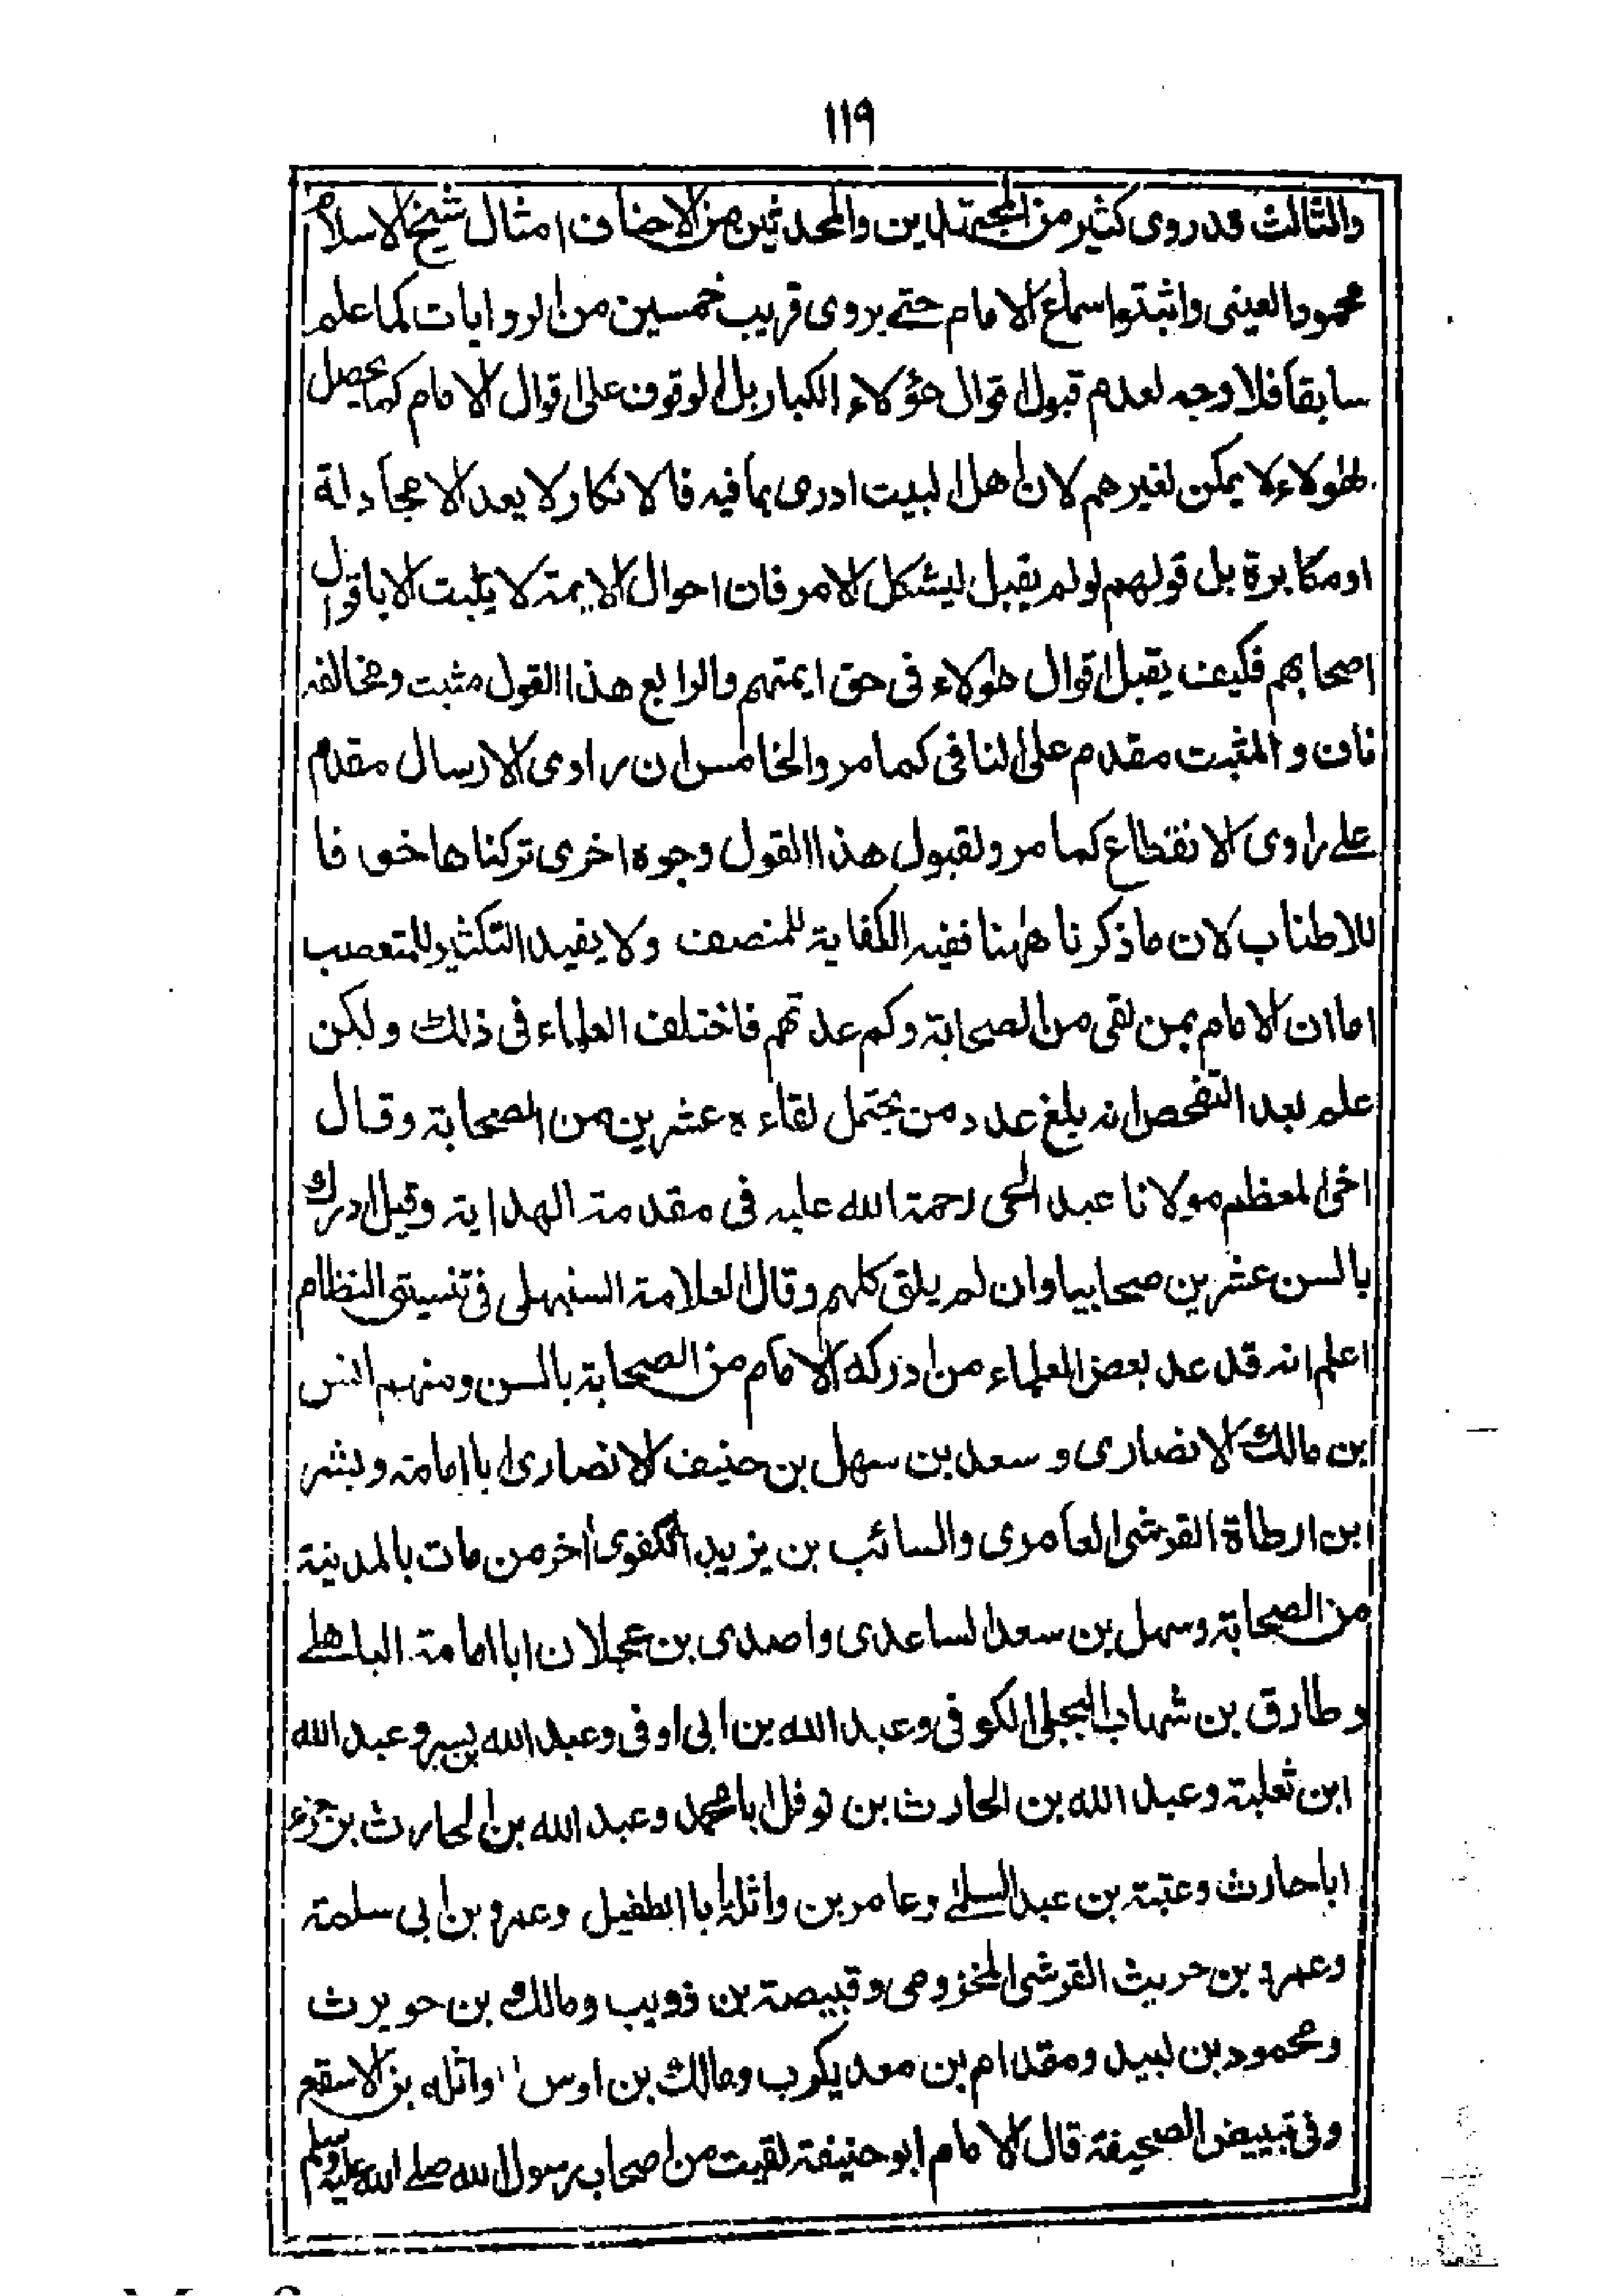 ١١٩
والثالث قد روى كثير من المجتهدين والمحدثين من الاحناف امثال شيخ الاسلام
محمود العينى واثبتوا سماع الامام حتے يروى قريب خمسين من الروايات كما علم
سابقا فلا وجه لعدم قبول اقوال هؤلاء الكبار بل الوقوف على اقوال الامام كما يحصل
لهؤلاء لا يمكن لغيرهم لان اهل البيت ادرى بما فيه فالانكار لا يعد الا مجادلة
او مكابرة بل قولهم لو لم يقبل ليشكل الامر فان احوال الايمة لا يثبت الا باقوال
اصحابهم فكيف يقبل اقوال هولاء فى حق ايمتهم والرابع هذا القول مثبت ومخالفه
ناف والمثبت مقدم على النافى كما مر والخامس ان راوى الارسال مقدم
علے راوى الانقطاع كما مر ولقبول هذا القول وجوه اخرى تركناها خوفا
للاطناب لان ما ذكرنا ههنا ففيه الكفاية للمنصف ولا يفيد التكثير للمتعصب
اما ان الامام بمن لقى من الصحابة وكم عدتهم فاختلف العلماء فى ذلك ولكن
علم بعد التفحص انه بلغ عدد من يحتمل لقاءه عشرين من الصحابة وقال
اخى المعظم مولانا عبد الحى رحمة الله عليه فى مقدمة الهداية وقيل ادرك
بالسن عشرين صحابيا وان لم يلق كلهم وقال العلامة السنبهلى فى تنسيق النظام
اعلم انه قد عد بعض العلماء من ادركه الامام من الصحابة بالسن ومنهم انس
ابن مالك الانصارى وسعد بن سهل بن حنيف الانصارى ابا امامة وبشر
ابن ارطاة القرشى العامرى والسائب بن يزيد الكفوى اخر من مات بالمدينة
من الصحابة وسهل بن سعد الساعدى واصدى بن عجلان ابا امامة الباهلے
وطارق بن شهاب البجلى الكوفى وعبد الله بن ابى اوفى وعبد الله بن بسر وعبد الله
ابن ثعلبة وعبد الله بن الحارث بن نوفل ابا محمد وعبد الله بن الحارث بن جزء
ابا حارث وعتبة بن عبد السلمے وعامر بن واثلة ابا الطفيل وعمرو بن ابى سلمة
وعمرو بن حريث القرشى المخزومى وقبيصة بن ذويب ومالك بن حويرث
ومحمود بن لبيد ومقدام بن معديكرب ومالك بن اوس واثله بن الاسقع
وفى تبييض الصحيفة قال الامام ابو حنيفة لقيت من اصحاب رسول الله صلے الله عليه وسلم